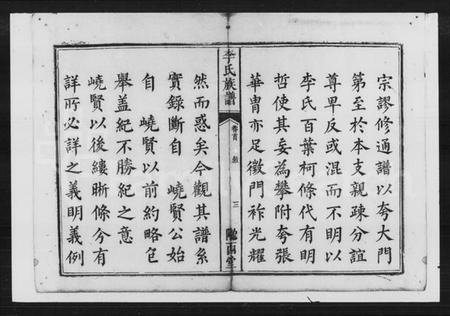 宗謬修通譜以夸大門
第至於本支親疎分誼
尊卑反或混而不明以
李氏百葉柯條代有明
哲使其妄為攀附夸張
華胄亦足徵門祚光耀
李氏族譜
卷首
三
然而惑矣今觀其譜系
實錄斷自 嶢賢公始
自 嶢賢以前約略包
舉蓋紀不勝紀之意
嶢賢以後縷晰條分有
詳所必詳之義明義例